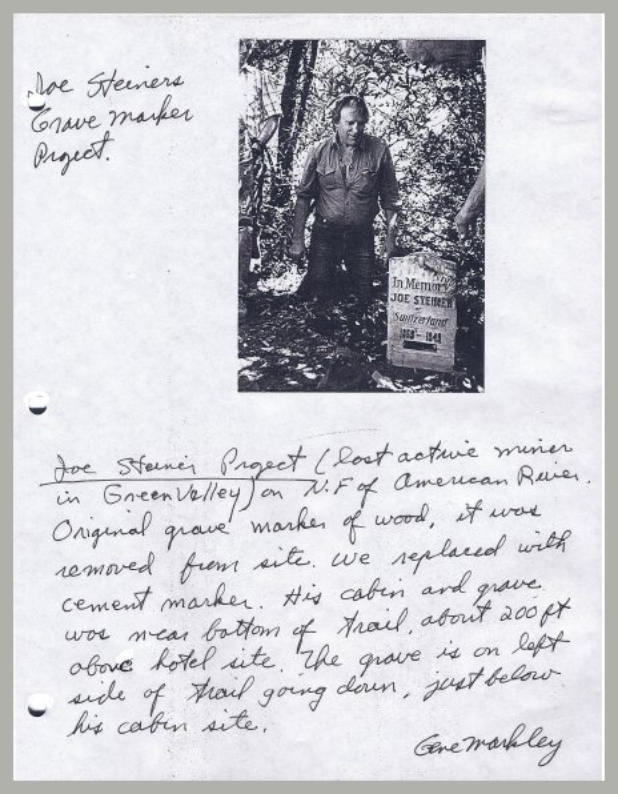 Joe Steiners
Grave marker
Project.
In Memory
JOE STEINER
of
Switzerland
Joe Steiner Project (last active miner
in Green Valley) on N.F of American River.
Original grave marker of wood, it was
removed from site. We replaced with
cement marker. His cabin and grave
was near bottom of trail, about 200 ft
above hotel site. The grave is on left
side of trail going down, just below
his cabin site.
Gene Markley